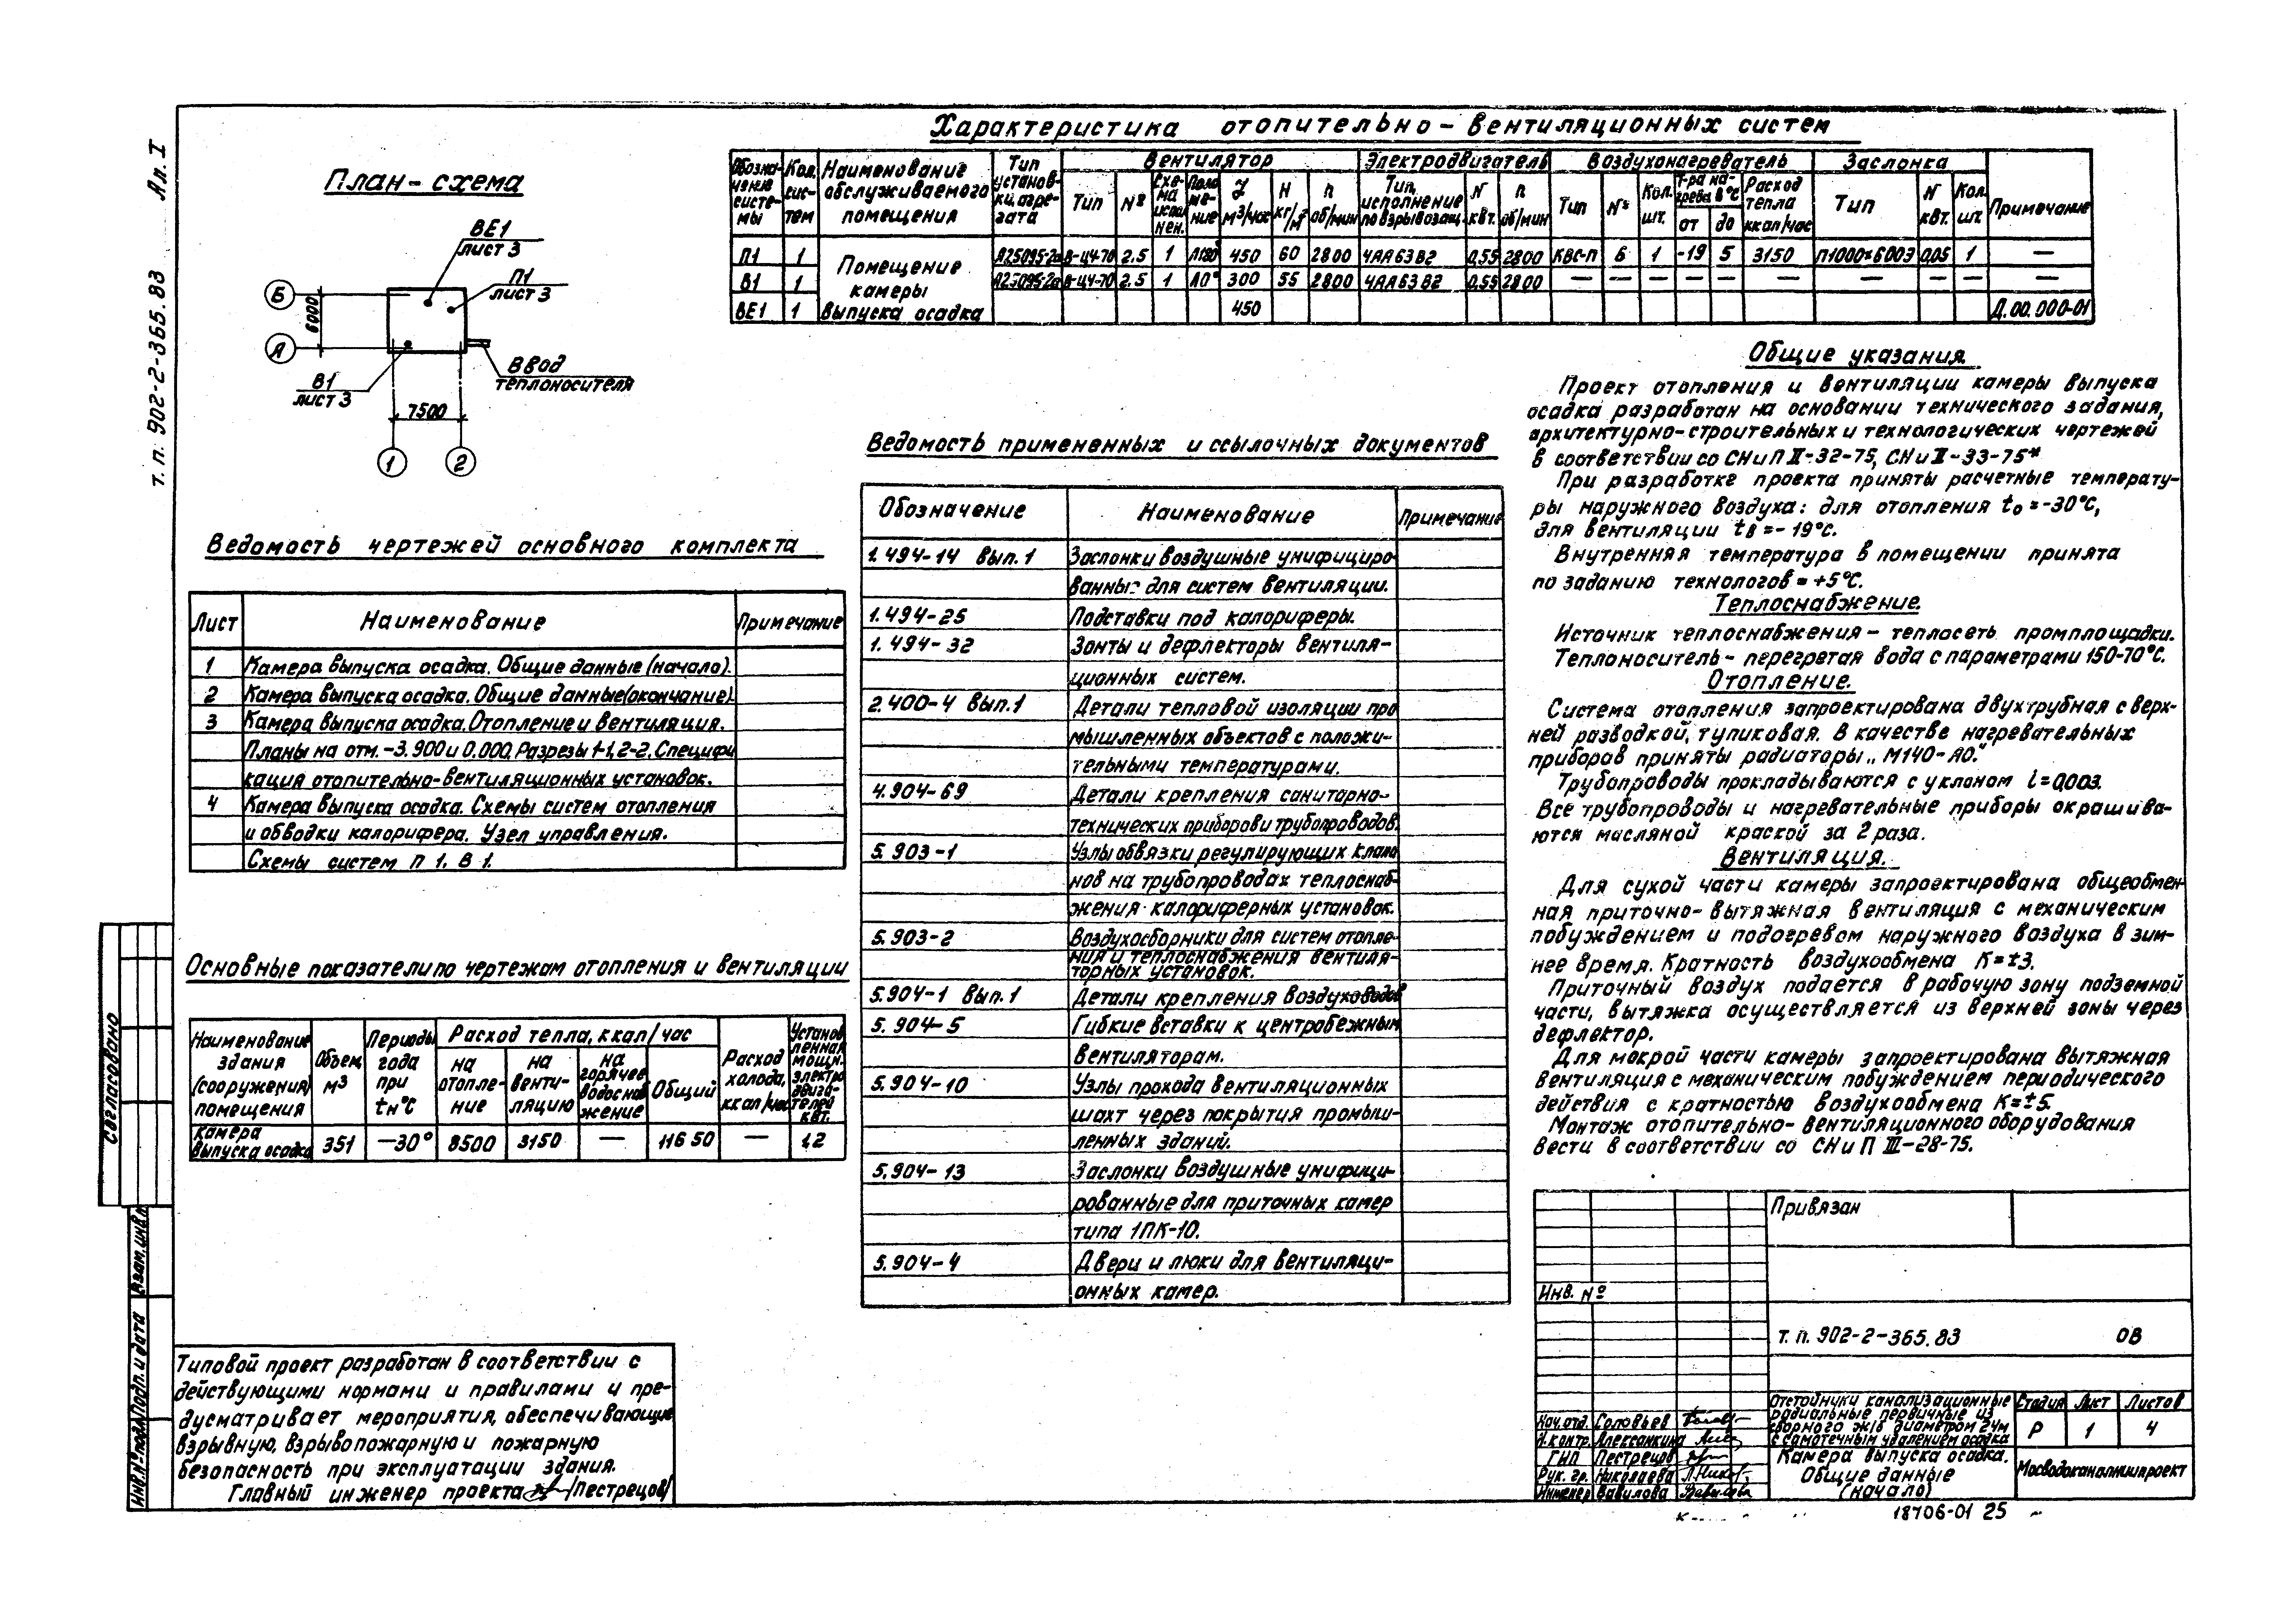 т. п. 902-2-365.83 Ал. I
План-схема
ВЕ1
лист 3
П1
лист 3
Б
6000
А
Ввод
теплоносителя
В1
лист 3
7500
1 2
Характеристика отопительно-вентиляционных систем
Обозначение системы | Кол. систем | Наименование обслуживаемого помещения | Тип установки, агрегата | Вентилятор | Электродвигатель | Воздухонагреватель | Заслонка | Примечание
Тип | № | Схема исполнен. | Положение | L м³/час | Н кг/м² | n об/мин | Тип, исполнение по взрывозащ. | N квт. | n об/мин | Тип | № | Кол. шт. | Т-ра нагрева в °С от до | Расход тепла ккал/час | Тип | N квт. | Кол. шт.
П1 | 1 | Помещение камеры выпуска осадка | А25095-2а | В-Ц4-70 | 2.5 | 1 | Л180° | 450 | 60 | 2800 | 4АА63В2 | 0,55 | 2800 | КВС-П | 6 | 1 | -19 | 5 | 3150 | П1000×600Э | 0,05 | 1 | —
В1 | 1 | А25095-2а | В-Ц4-70 | 2.5 | 1 | Л0° | 300 | 55 | 2800 | 4АА63В2 | 0,55 | 2800 | — | — | — | — | — | — | — | — | — | —
ВЕ1 | 1 | 450 | Д.00.000-01
Ведомость чертежей основного комплекта
Лист | Наименование | Примечание
1 | Камера выпуска осадка. Общие данные (начало).
2 | Камера выпуска осадка. Общие данные (окончание).
3 | Камера выпуска осадка. Отопление и вентиляция.
Планы на отм. -3.900 и 0.000. Разрезы 1-1, 2-2. Специфи
кация отопительно-вентиляционных установок.
4 | Камера выпуска осадка. Схемы систем отопления
и обводки калорифера. Узел управления.
Схемы систем П 1. В 1.
Основные показатели по чертежам отопления и вентиляции
Наименование здания (сооружения) помещения | Объем, м³ | Периоды года при tн°С | Расход тепла, ккал/час | Расход холода, ккал/час | Установленная мощн. электродвигателей квт.
на отопление | на вентиляцию | на горячее водоснабжение | Общий
камера выпуска осадка | 351 | —30° | 8500 | 3150 | — | 11650 | — | 1.2
Ведомость примененных и ссылочных документов
Обозначение | Наименование | Примечание
1.494-14 вып. 1 | Заслонки воздушные унифициро-
ванные для систем вентиляции.
1.494-25 | Подставки под калориферы.
1.494-32 | Зонты и дефлекторы вентиля-
ционных систем.
2.400-4 вып.1 | Детали тепловой изоляции про
мышленных объектов с положи-
тельными температурами.
4.904-69 | Детали крепления санитарно-
технических приборов и трубопроводов.
5.903-1 | Узлы обвязки регулирующих клапа
нов на трубопроводах теплоснаб-
жения калориферных установок.
5.903-2 | Воздухосборники для систем отопле-
ния и теплоснабжения вентиля-
торных установок.
5.904-1 вып. 1 | Детали крепления воздуховодов
5.904-5 | Гибкие вставки к центробежным
вентиляторам.
5.904-10 | Узлы прохода вентиляционных
шахт через покрытия промыш-
ленных зданий.
5.904-13 | Заслонки воздушные унифици-
рованные для приточных камер
типа 1ПК-10.
5.904-4 | Двери и люки для вентиляци-
онных камер.
Общие указания
Проект отопления и вентиляции камеры выпуска
осадка разработан на основании технического задания,
архитектурно-строительных и технологических чертежей
в соответствии со СНиП II-32-75, СНиII-33-75*
При разработке проекта приняты расчетные температу-
ры наружного воздуха: для отопления to = -30°С,
для вентиляции tв = - 19°С.
Внутренняя температура в помещении принята
по заданию технологов = +5°С.
Теплоснабжение.
Источник теплоснабжения - теплосеть промплощадки.
Теплоноситель - перегретая вода с параметрами 150-70°С.
Отопление.
Система отопления запроектирована двухтрубная с верх-
ней разводкой, тупиковая. В качестве нагревательных
приборов приняты радиаторы „М140-АО."
Трубопроводы прокладываются с уклоном i=0,003.
Все трубопроводы и нагревательные приборы окрашива-
ются масляной краской за 2 раза.
Вентиляция.
Для сухой части камеры запроектирована общеобмен-
ная приточно-вытяжная вентиляция с механическим
побуждением и подогревом наружного воздуха в зим-
нее время. Кратность воздухообмена К=±3.
Приточный воздух подается в рабочую зону подземной
части, вытяжка осуществляется из верхней зоны через
дефлектор.
Для мокрой части камеры запроектирована вытяжная
вентиляция с механическим побуждением периодического
действия с кратностью воздухообмена К=±5.
Монтаж отопительно-вентиляционного оборудования
вести в соответствии со СНиП III-28-75.
Согласовано
Взам. инв.№
Подп. и дата
Инв.№ подл.
Типовой проект разработан в соответствии с
действующими нормами и правилами и пре-
дусматривает мероприятия, обеспечивающие
взрывную, взрывопожарную и пожарную
безопасность при эксплуатации здания.
Главный инженер проекта /Пестрецов/
Привязан
Инв. №
т. п. 902-2-365.83 ОВ
Нач.отд. Соловьев
Н.контр. Алексанкина
ГИП Пестрецов
Рук. гр. Николаева
Инженер Вавилова
Отстойники канализационные
радиальные первичные из
сборного ж/б диаметром 24м
с самотечным удалением осадка
Стадия Лист Листов
Р 1 4
Камера выпуска осадка.
Общие данные
(начало)
Мосводоканалниипроект
18706-01 25